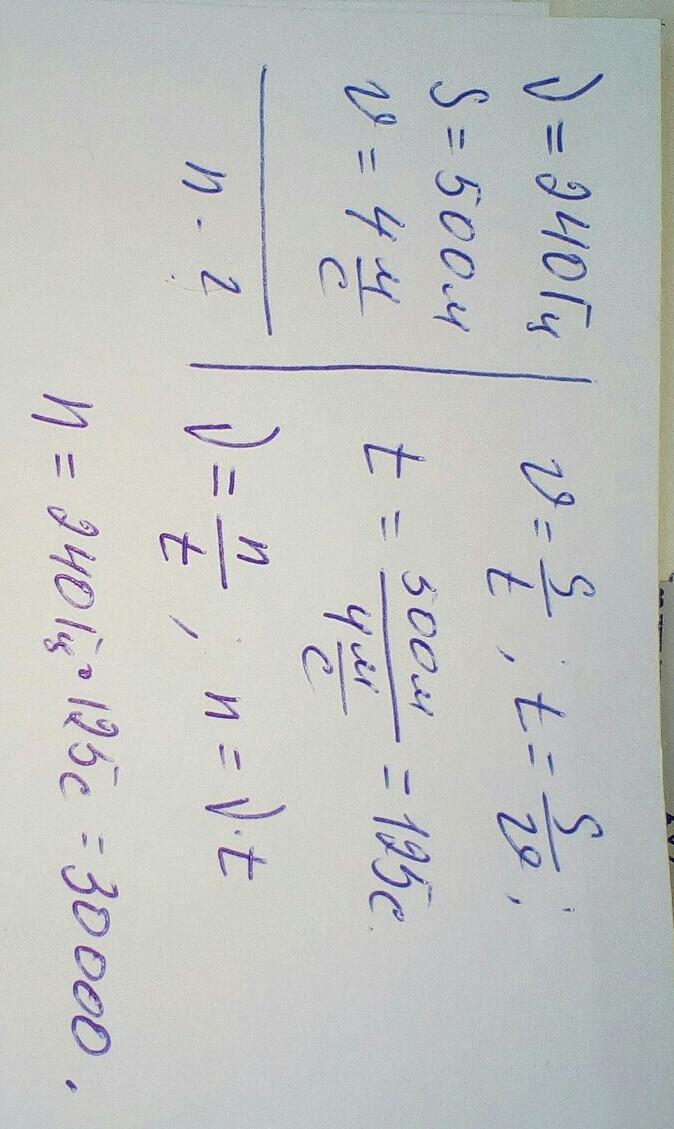 ν = 240Гц
S = 500м
υ = 4 м/с
n - ?
υ = S/t ; t = S/υ ;
t = 500м / 4 м/с = 125с.
ν = n/t ; n = ν·t
n = 240Гц·125с = 30000.